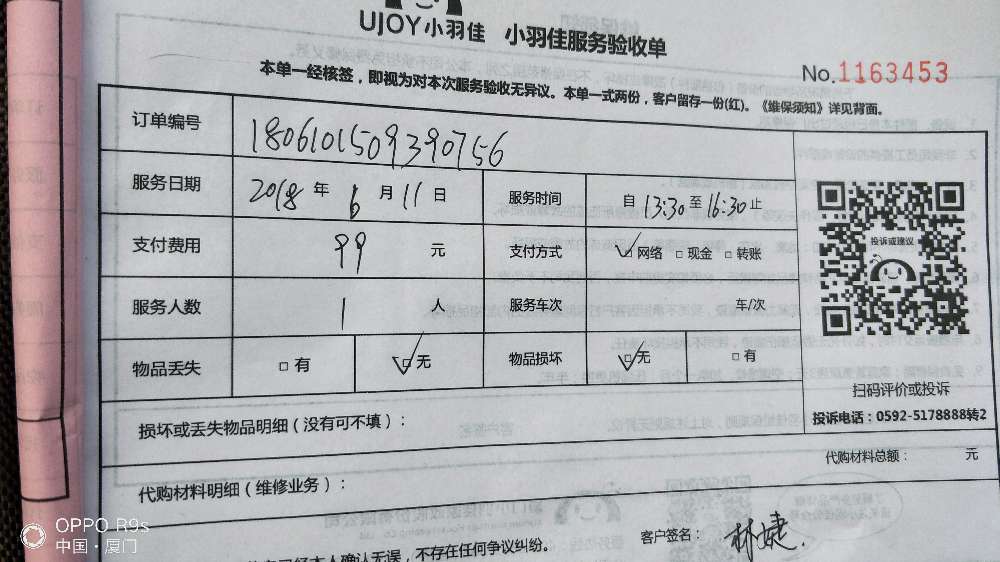 UJOY小羽佳 小羽佳服务验收单
No.1163453
本单一经核签，即视为对本次服务验收无异议。本单一式两份，客户留存一份(红)。《维保须知》详见背面。
订单编号 1806101509390756
服务日期 2018 年 6 月 11 日 服务时间 自 13:30 至 16:30 止
支付费用 99 元 支付方式 ☑网络 □现金 □转账
服务人数 1 人 服务车次 车/次
物品丢失 □有 ☑无 物品损坏 ☑无 □有
投诉或建议
扫码评价或投诉
投诉电话：0592-5178888转2
损坏或丢失物品明细（没有可不填）：
代购材料总额： 元
代购材料明细（维修业务）：
客户签名： 林婕
已经本人确认无误，不存在任何争议纠纷。
OPPO R9s
中国·厦门